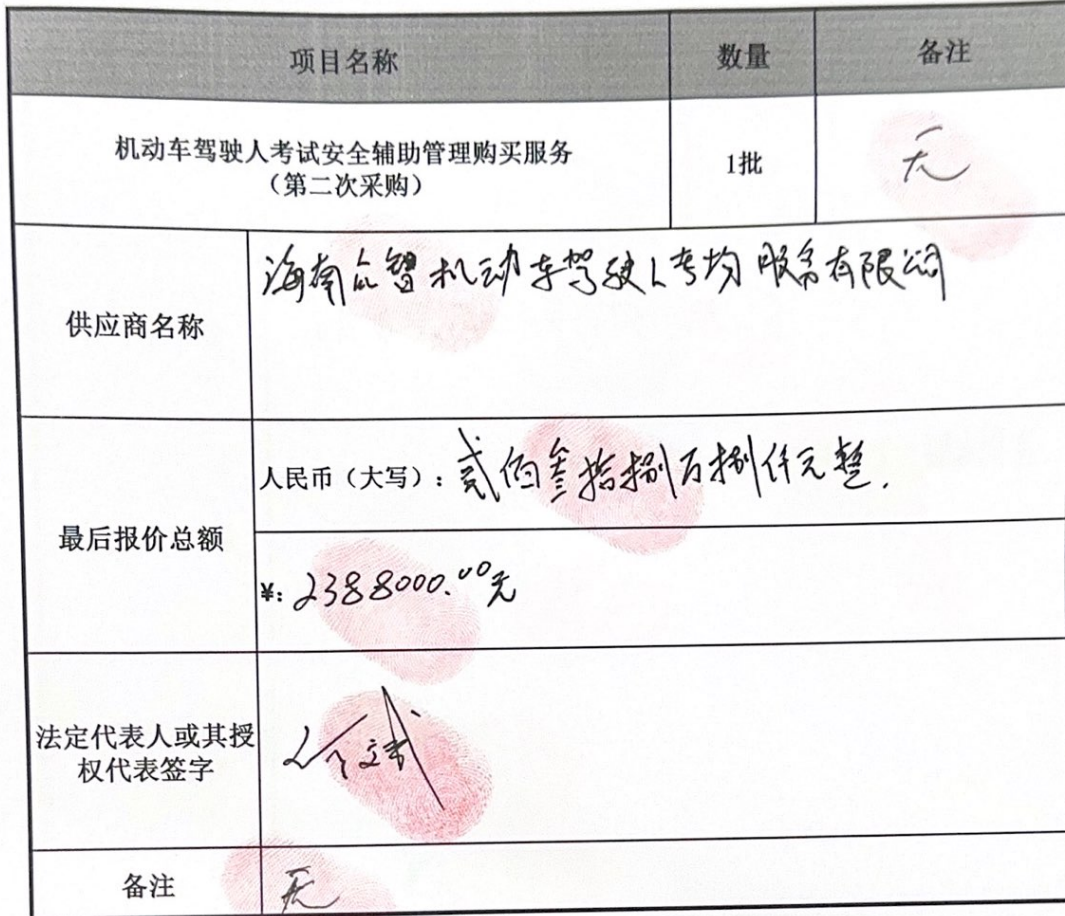 项目名称 数量 备注
机动车驾驶人考试安全辅助管理购买服务
（第二次采购） 1批 无
供应商名称 海南众智机动车驾驶人考场服务有限公司
最后报价总额 人民币（大写）：贰佰叁拾捌万捌仟元整.
¥：2388000.00元
法定代表人或其授
权代表签字
备注 无